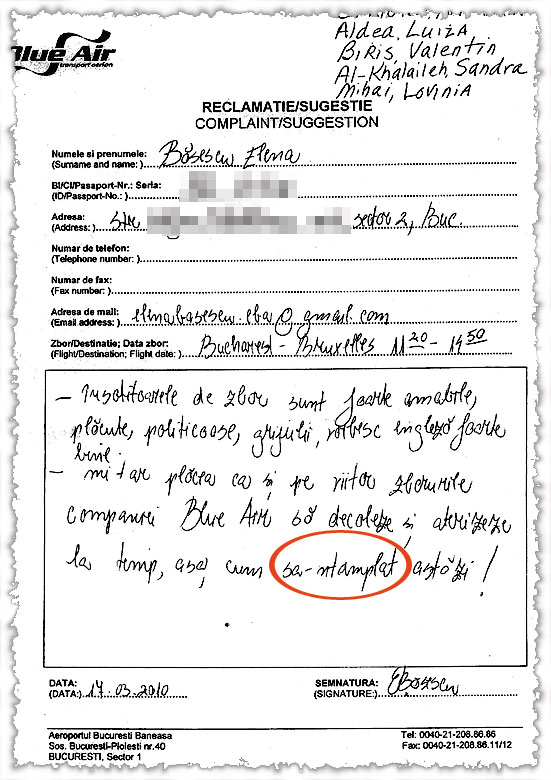 Aldea, LUIZA
BIRIS, Valentin
Al-Khalaileh, Sandra
Mihai, Lovinia
Blue Air
transport aerian
RECLAMATIE/SUGESTIE
COMPLAINT/SUGGESTION
Numele si prenumele: Băsescu Elena
(Surname and name: )
BI/CI/Pasaport-Nr.: Seria:
(ID/Passport-No.: )
Adresa: Str sector 2, Buc.
(Address: )
Numar de telefon:
(Telephone number: )
Numar de fax:
(Fax number: )
Adresa de mail: elenabasescu.eba@gmail.com
(Email address: )
Zbor/Destinatie; Data zbor: Bucharest - Bruxelles 11 20 - 14 50
(Flight/Destination; Flight date: )
- Insotitoarele de zbor sunt foarte amabile,
plăcute, politicoase, grijulii, vorbesc engleză foarte
bine.
- mi-ar plăcea ca și pe viitor zborurile
companiei Blue Air să decoleze și aterizeze
la timp, așa cum sa-ntamplat astăzi!
DATA: 17.03.2010
(DATA:)
SEMNATURA: EBăsescu
(SIGNATURE:)
Aeroportul Bucuresti Baneasa
Sos. Bucuresti-Ploiesti nr.40
BUCURESTI, Sector 1
Tel: 0040-21-208.86.86
Fax: 0040-21-208.86.11/12